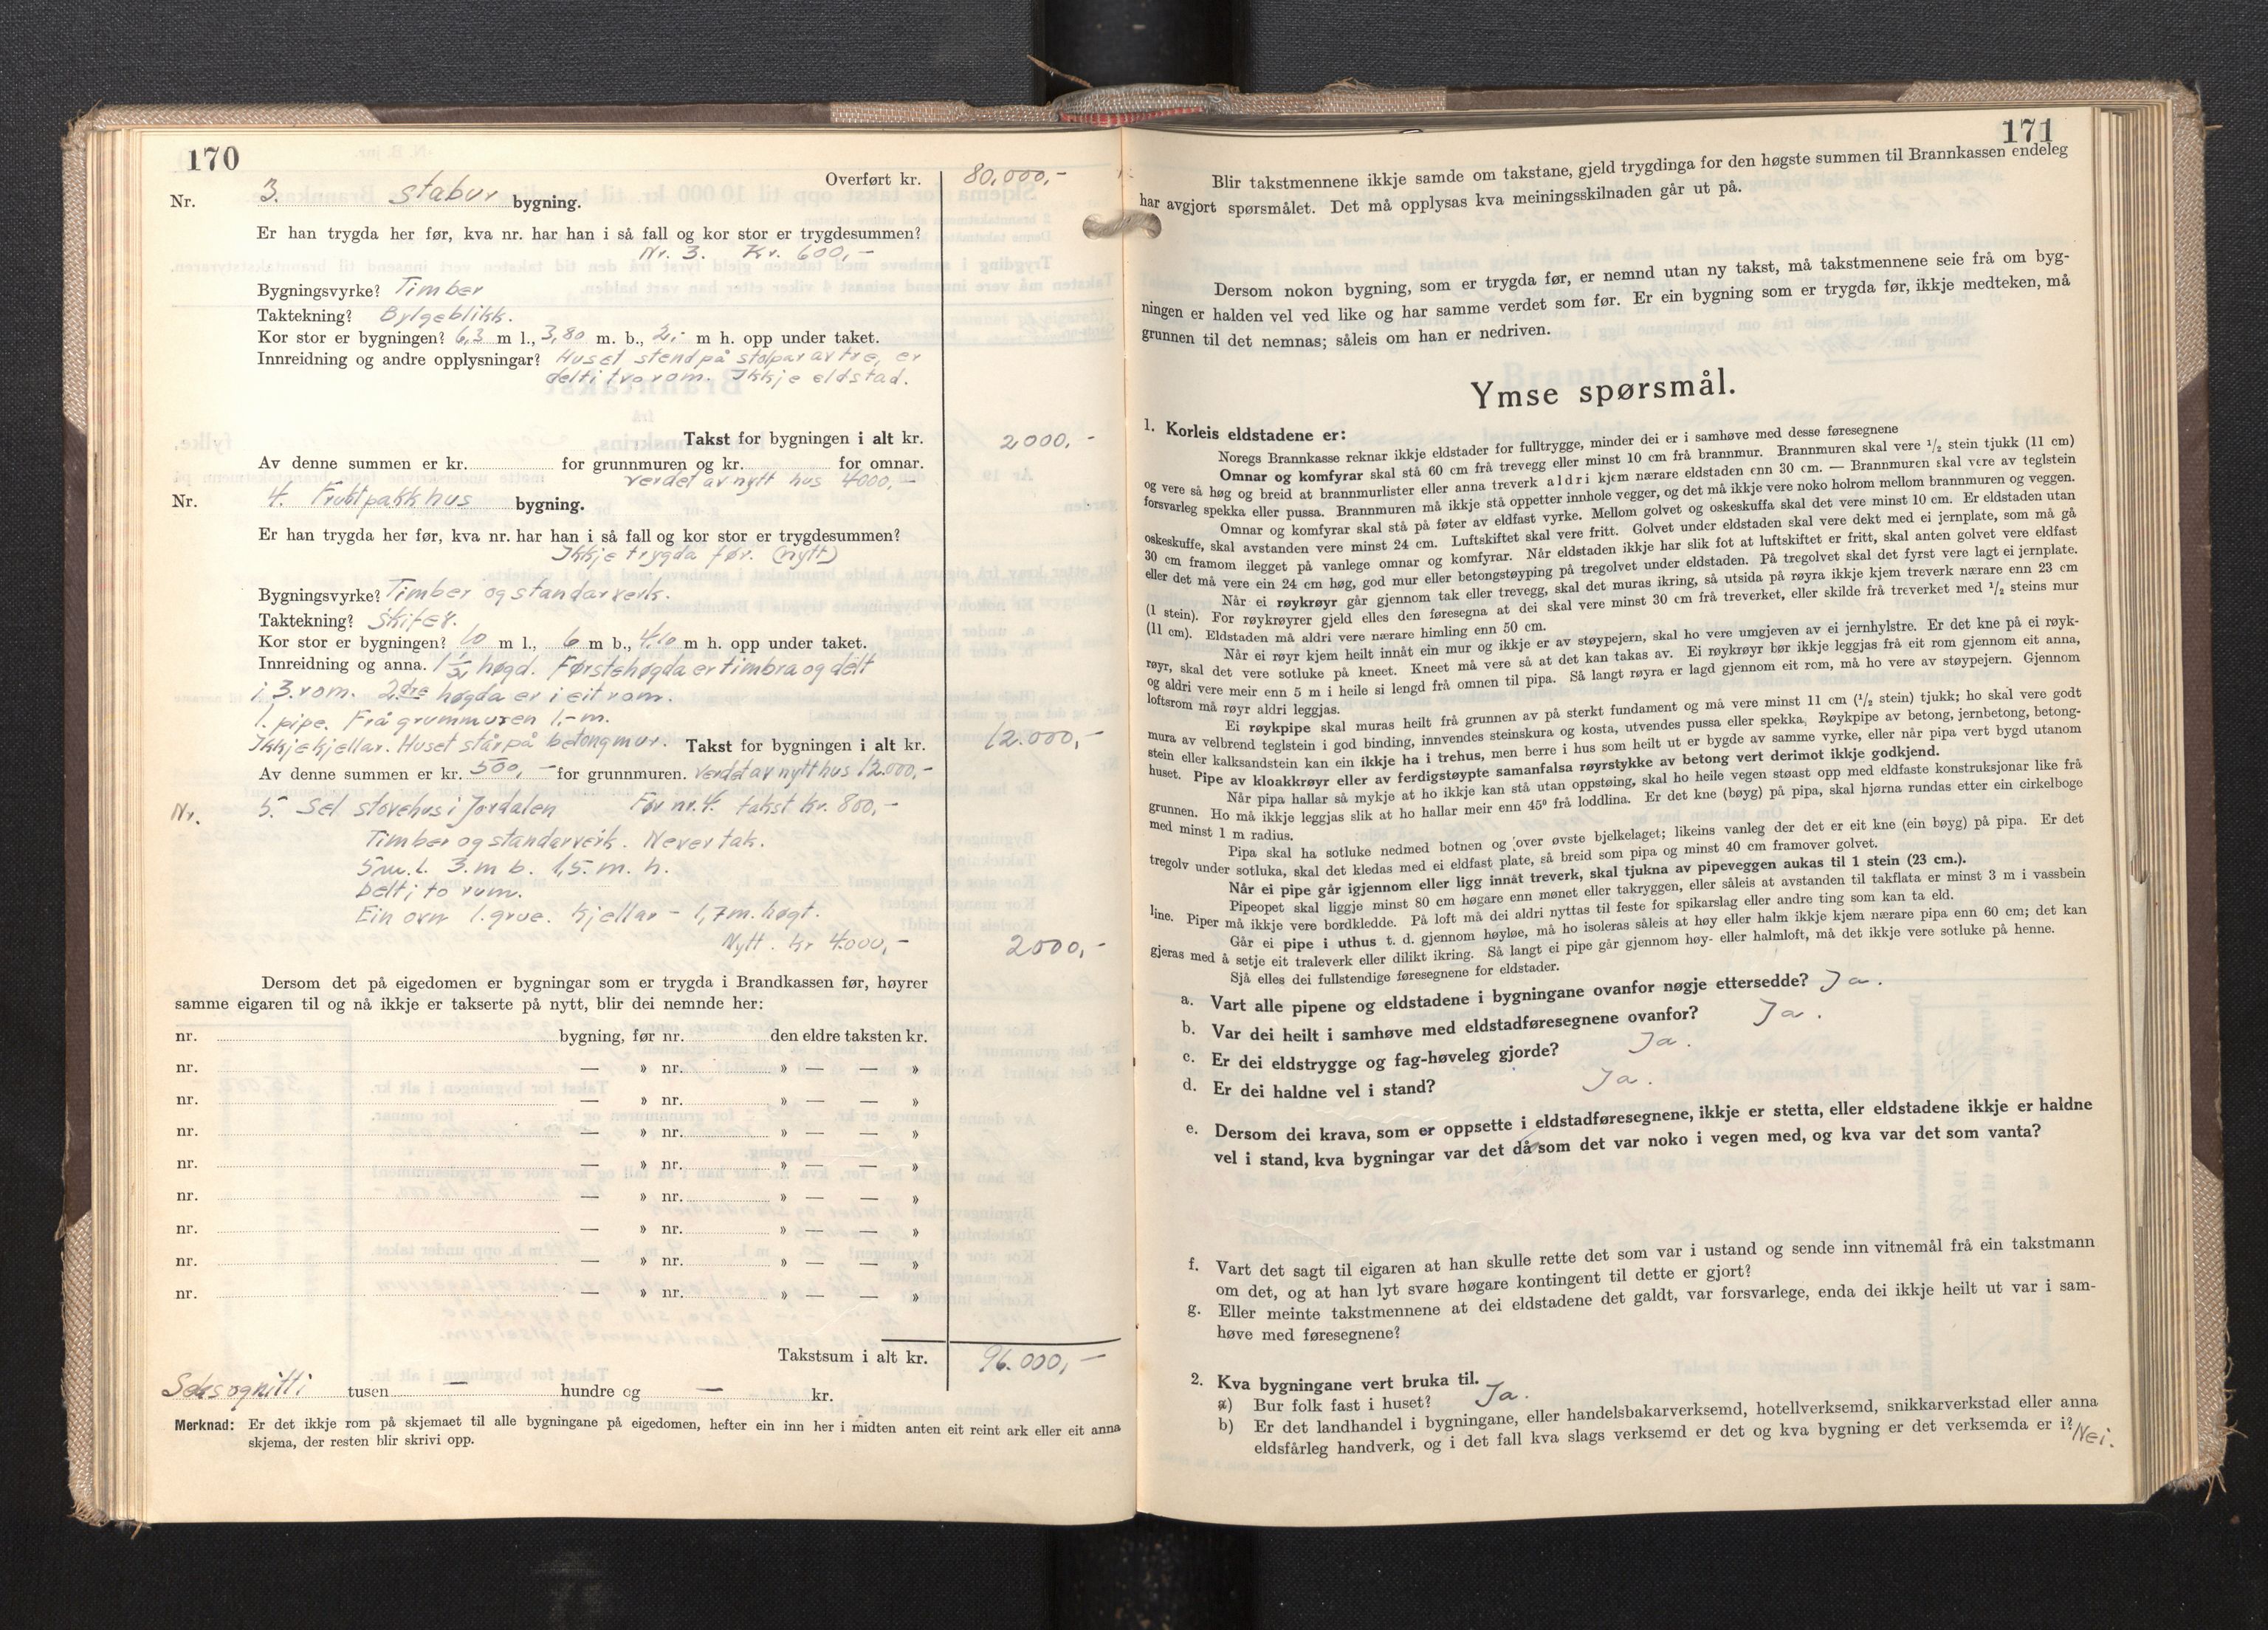 170
Overført kr. 80,000,-
Nr. 3. Stabur bygning.
Er han trygda her før, kva nr. har han i så fall og kor stor er trygdesummen?
Nr. 3. Kr. 600,-
Bygningsvyrke? Timber
Taktekning? Bylgeblikk.
Kor stor er bygningen? 6,3 m l., 3,80 m. b., 2,- m h. opp under taket.
Innreidning og andre opplysningar? Huset stend på stolpar av tre, er
delt i tvo rom. Ikkje eldstad.
Takst for bygningen i alt kr. 2000,-
Av denne summen er kr. for grunnmuren og kr. for omnar.
verdet av nytt hus 4000,-
Nr. 4. Fruktpakkhus bygning.
Er han trygda her før, kva nr. har han i så fall og kor stor er trygdesummen?
Ikkje trygda før. (nytt)
Bygningsvyrke? Timber og standarverk.
Taktekning? Skifer.
Kor stor er bygningen? 10 m l., 6 m b., 4,10 m h. opp under taket.
Innreidning og anna. 1 ½ høgd. Førstehøgda er timbra og delt
i 3. rom. 2dre høgda er i eit rom.
1. pipe. Frå grummuren 1,- m.
Ikkje kjellar. Huset står på betongmur. Takst for bygningen i alt kr. 12.000,-
Av denne summen er kr. 500,- for grunnmuren. Verdet av nytt hus 12.000,-
Nr. 5. Sel stovehus i Jordalen Før nr. 4. takst kr. 800,-
Timber og standarverk. Never tak.
5 m. l. 3. m b. 1,5. m. h.
Delt i to rum.
Ein ovn 1. grue. Kjellar - 1,7 m. høgt.
Nytt. kr 4.000,- 2000,-
Dersom det på eigedomen er bygningar som er trygda i Brandkassen før, høyrer
samme eigaren til og nå ikkje er takserte på nytt, blir dei nemnde her:
nr. bygning, før nr. den eldre taksten kr.
nr. — » nr. » — — »
nr. — » nr. » — — »
nr. — » nr. » — — »
nr. — » nr. » — — »
nr. — » nr. » — — »
nr. — » nr. » — — »
nr. — » nr. » — — »
nr. — » nr. » — — »
Takstsum i alt kr. 96.000,-
Seksognitti tusen — hundre og — kr.
Merknad: Er det ikkje rom på skjemaet til alle bygningane på eigedomen, hefter ein inn her i midten anten eit reint ark eller eit anna
skjema, der resten blir skrivi opp.
171
Blir takstmennene ikkje samde om takstane, gjeld trygdinga for den høgste summen til Brannkassen endeleg
har avgjort spørsmålet. Det må opplysas kva meiningsskilnaden går ut på.
Dersom nokon bygning, som er trygda før, er nemnd utan ny takst, må takstmennene seie frå om byg-
ningen er halden vel ved like og har samme verdet som før. Er ein bygning som er trygda før, ikkje medteken, må
grunnen til det nemnas; såleis om han er nedriven.
Ymse spørsmål.
1. Korleis eldstadene er:
Noregs Brannkasse reknar ikkje eldstader for fulltrygge, minder dei er i samhøve med desse føresegnene
Omnar og komfyrar skal stå 60 cm frå trevegg eller minst 10 cm frå brannmur. Brannmuren skal vere ½ stein tjukk (11 cm)
og vere så høg og breid at brannmurlister eller anna treverk aldri kjem nærare eldstaden enn 30 cm. — Brannmuren skal vere av teglstein
forsvarleg spekka eller pussa. Brannmuren må ikkje stå oppetter innhole vegger, og det må ikkje vere noko holrom mellom brannmuren og veggen.
Omnar og komfyrar skal stå på føter av eldfast vyrke. Mellom golvet og oskeskuffa skal det vere minst 10 cm. Er eldstaden utan
oskeskuffe, skal avstanden vere minst 24 cm. Luftskiftet skal vere fritt. Golvet under eldstaden skal vere dekt med ei jernplate, som må gå
30 cm framom ilegget på vanlege omnar og komfyrar. Når eldstaden ikkje har slik fot at luftskiftet er fritt, skal anten golvet vere eldfast
eller det må vere ein 24 cm høg, god mur eller betongstøyping på tregolvet under eldstaden. På tregolvet skal det fyrst vere lagt ei jernplate.
Når ei røykrøyr går gjennom tak eller trevegg, skal det muras ikring, så utsida på røyra ikkje kjem treverk nærare enn 23 cm
(1 stein). For røykrøyrer gjeld elles den føresegna at dei skal vere minst 30 cm frå treverket, eller skilde frå treverket med ½ steins mur
(11 cm). Eldstaden må aldri vere nærare himling enn 50 cm.
Når ei røyr kjem heilt innåt ein mur og ikkje er av støypejern, skal ho vere umgjeven av ei jernhylstre. Er det kne på ei røyk-
røyr, skal det vere sotluke på kneet. Kneet må vere så at det kan takas av. Ei røykrøyr bør ikkje leggjas frå eit rom gjennom eit anna,
og aldri vere meir enn 5 m i heile si lengd frå omnen til pipa. Så langt røyra er lagd gjennom eit rom, må ho vere av støypejern. Gjennom
loftsrom må røyr aldri leggjas.
Ei røykpipe skal muras heilt frå grunnen av på sterkt fundament og må vere minst 11 cm (½ stein) tjukk; ho skal vere godt
mura av velbrend teglstein i god binding, innvendes steinskura og kosta, utvendes pussa eller spekka. Røykpipe av betong, jernbetong, betong-
stein eller kalksandstein kan ein ikkje ha i trehus, men berre i hus som heilt ut er bygde av samme vyrke, eller når pipa vert bygd utanom
huset. Pipe av kloakkrøyr eller av ferdigstøypte samanfalsa røyrstykke av betong vert derimot ikkje godkjend.
Når pipa hallar så mykje at ho ikkje kan stå utan oppstøing, skal ho heile vegen støast opp med eldfaste konstruksjonar like frå
grunnen. Ho må ikkje leggjas slik at ho hallar meir enn 45° frå loddlina. Er det kne (bøyg) på pipa, skal hjørna rundas etter ein cirkelboge
med minst 1 m radius.
Pipa skal ha sotluke nedmed botnen og over øvste bjelkelaget; likeins vanleg der det er eit kne (ein bøyg) på pipa. Er det
tregolv under sotluka, skal det kledas med ei eldfast plate, så breid som pipa og minst 40 cm framover golvet.
Når ei pipe går igjennom eller ligg innåt treverk, skal tjukna av pipeveggen aukas til 1 stein (23 cm.).
Pipeopet skal liggje minst 80 cm høgare enn mønet eller takryggen, eller såleis at avstanden til takflata er minst 3 m i vassbein
line. Piper må ikkje vere bordkledde. På loft må dei aldri nyttas til feste for spikarslag eller andre ting som kan ta eld.
Går ei pipe i uthus t. d. gjennom høyløe, må ho isoleras såleis at høy eller halm ikkje kjem nærare pipa enn 60 cm; det kan
gjeras med å setje eit traleverk eller dilikt ikring. Så langt ei pipe går gjennom høy- eller halmloft, må det ikkje vere sotluke på henne.
Sjå elles dei fullstendige føresegnene for eldstader.
a. Vart alle pipene og eldstadene i bygningane ovanfor nøgje ettersedde? Ja.
b. Var dei heilt i samhøve med eldstadføresegnene ovanfor? Ja.
c. Er dei eldstrygge og fag-høveleg gjorde? Ja.
d. Er dei haldne vel i stand? Ja.
e. Dersom dei krava, som er oppsette i eldstadføresegnene, ikkje er stetta, eller eldstadene ikkje er haldne
vel i stand, kva bygningar var det då som det var noko i vegen med, og kva var det som vanta?
f. Vart det sagt til eigaren at han skulle rette det som var i ustand og sende inn vitnemål frå ein takstmann
om det, og at han lyt svare høgare kontingent til dette er gjort?
g. Eller meinte takstmennene at dei eldstadene det galdt, var forsvarlege, enda dei ikkje heilt ut var i sam-
høve med føresegnene?
2. Kva bygningane vert bruka til.
a) Bur folk fast i huset? Ja.
b) Er det landhandel i bygningane, eller handelsbakarverksemd, hotellverksemd, snikkarverkstad eller anna
eldsfårleg handverk, og i det fall kva slags verksemd er det og kva bygning er det verksemda er i? Nei.